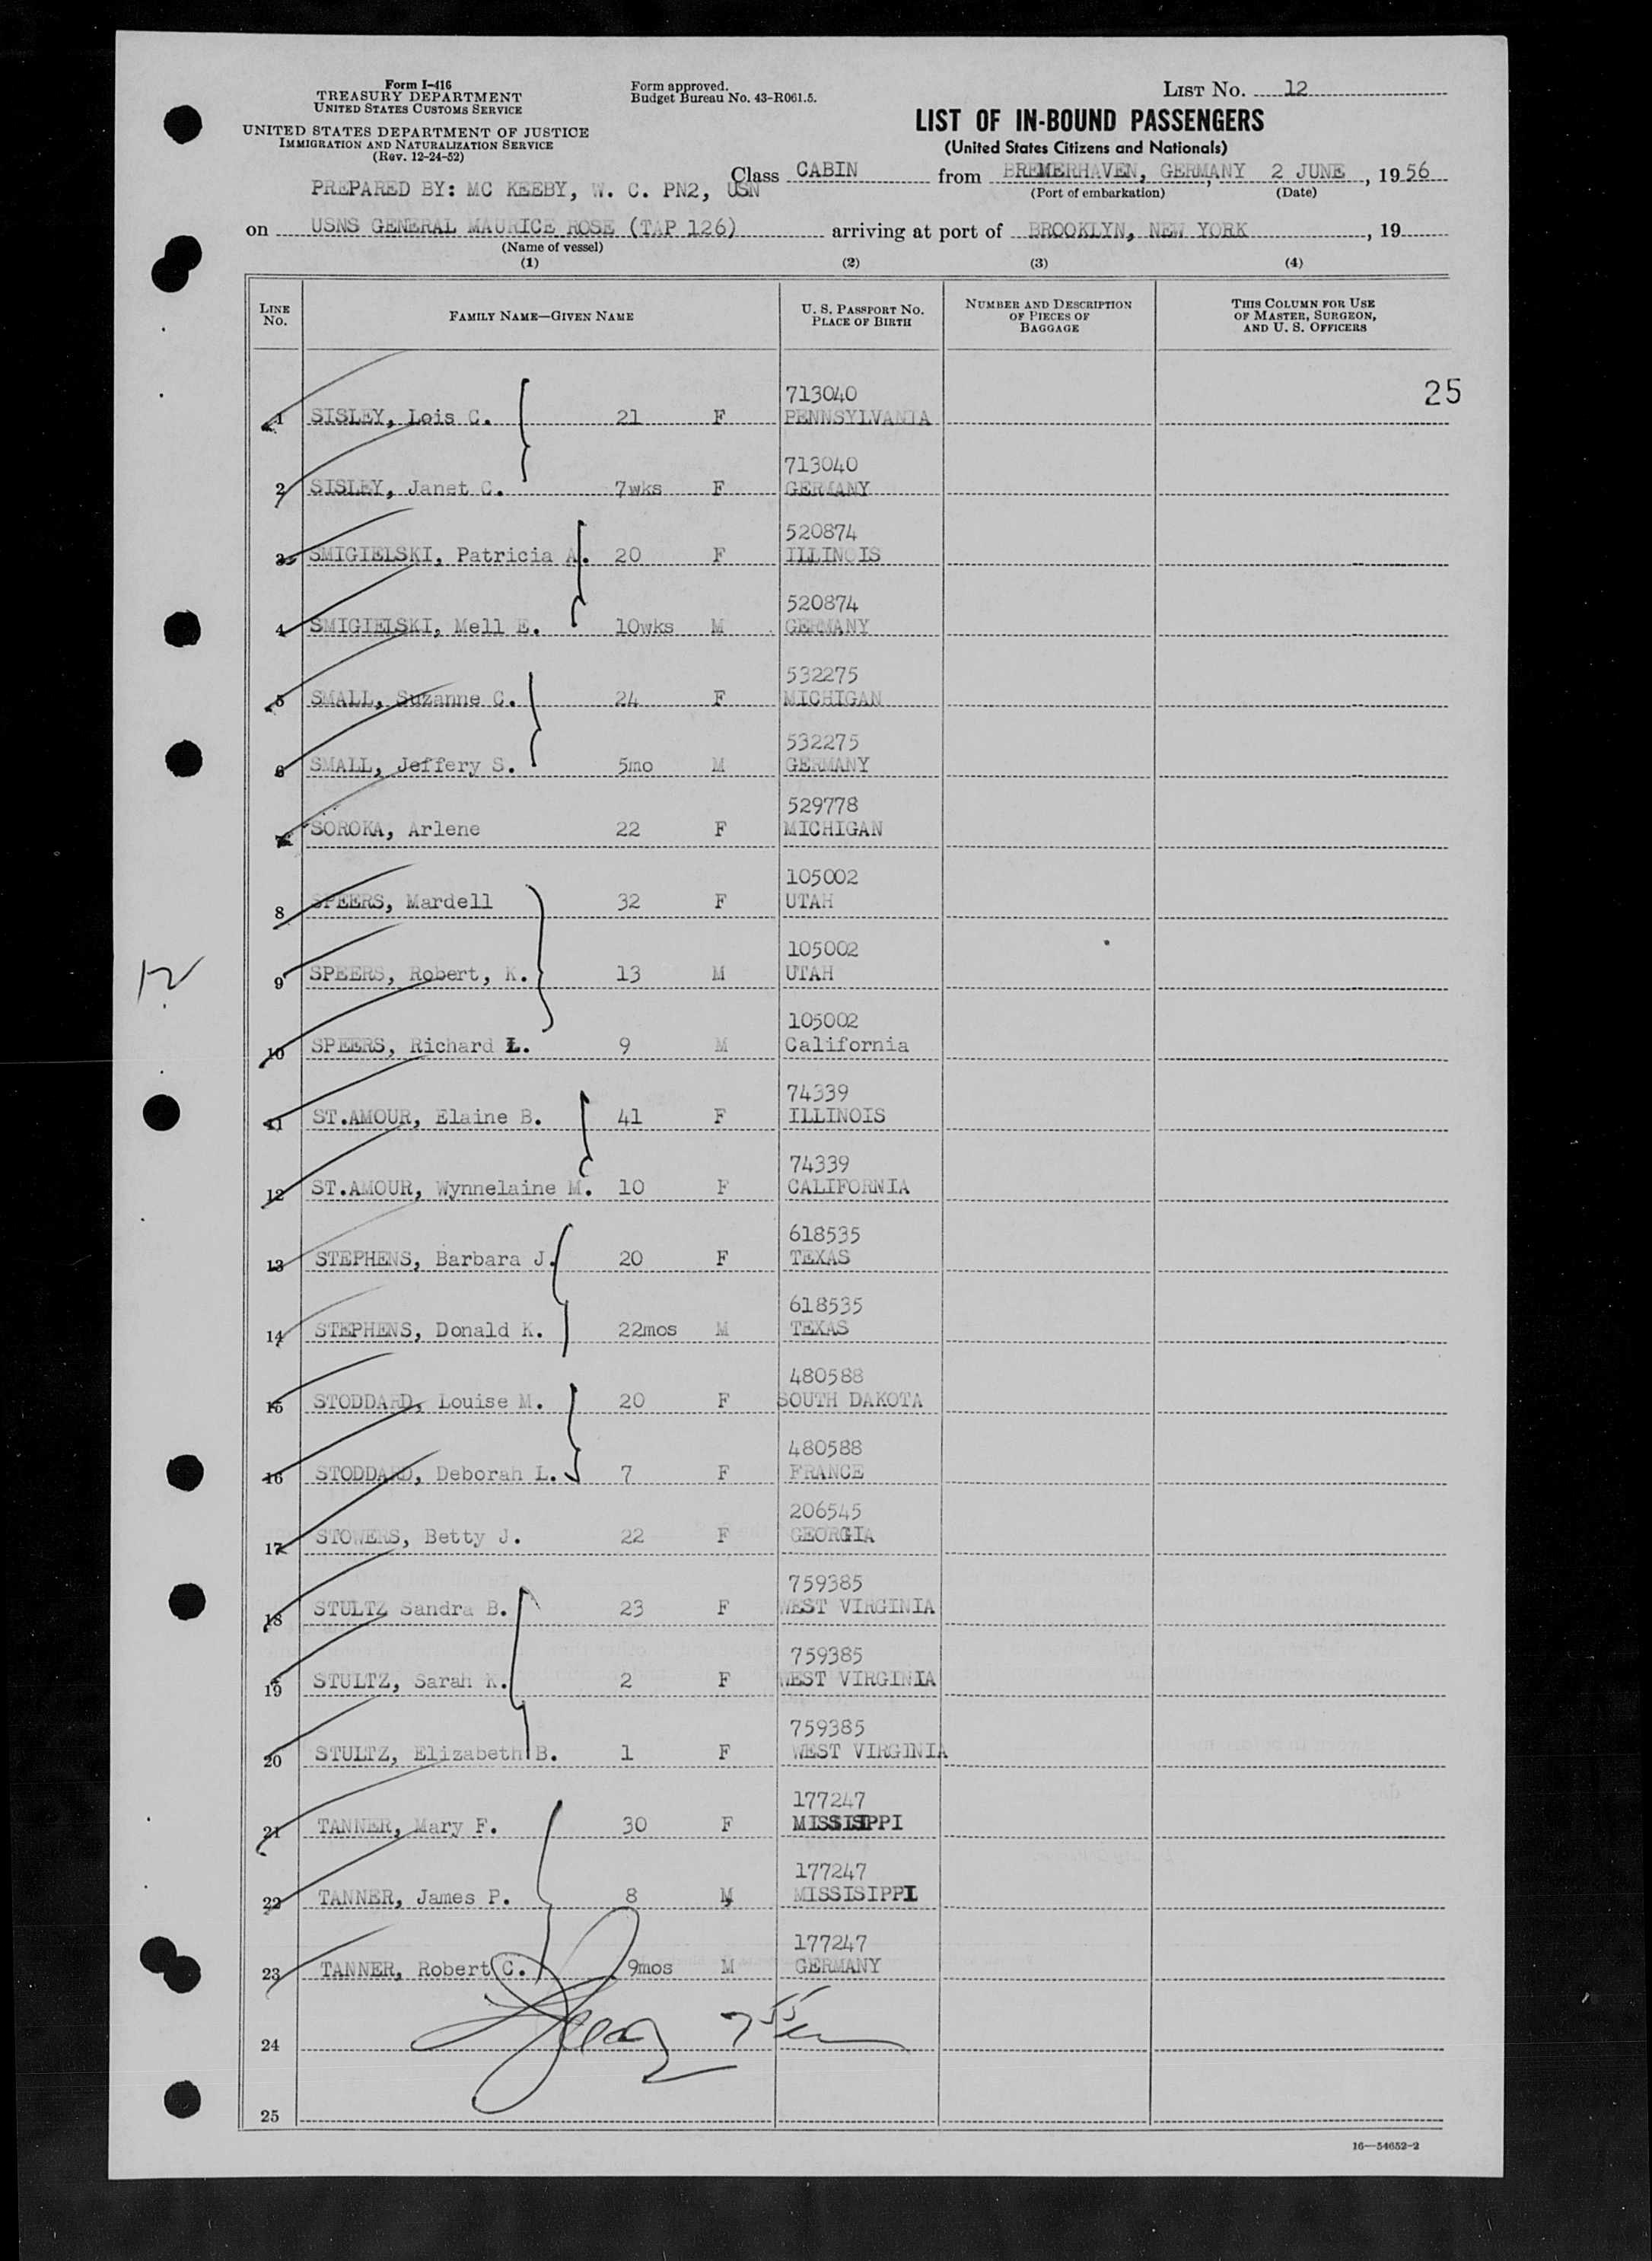 Form I-416
TREASURY DEPARTMENT
UNITED STATES CUSTOMS SERVICE
UNITED STATES DEPARTMENT OF JUSTICE
IMMIGRATION AND NATURALIZATION SERVICE
(Rev. 12-24-52)
Form approved.
Budget Bureau No. 43-R061.5.
LIST No. 12
LIST OF IN-BOUND PASSENGERS
(United States Citizens and Nationals)
PREPARED BY: MC KEEBY, W. C. PN2, USN
Class CABIN from BREMERHAVEN, GERMANY, 2 JUNE, 1956
(Port of embarkation) (Date)
on USNS GENERAL MAURICE ROSE (TAP 126) arriving at port of BROOKLYN, NEW YORK, 19
(Name of vessel)
(1) (2) (3) (4)
LINE No. FAMILY NAME—GIVEN NAME U. S. PASSPORT NO. PLACE OF BIRTH NUMBER AND DESCRIPTION OF PIECES OF BAGGAGE THIS COLUMN FOR USE OF MASTER, SURGEON, AND U. S. OFFICERS
25
713040
1 SISLEY, Lois C. 21 F PENNSYLVANIA
713040
2 SISLEY, Janet C. 7wks F GERMANY
520874
3 SMIGIELSKI, Patricia A. 20 F ILLINOIS
520874
4 SMIGIELSKI, Mell E. 10wks M GERMANY
532275
5 SMALL, Suzanne C. 24 F MICHIGAN
532275
6 SMALL, Jeffery S. 5mo M GERMANY
529778
7 SOROKA, Arlene 22 F MICHIGAN
105002
8 SPEERS, Mardell 32 F UTAH
105002
9 SPEERS, Robert, K. 13 M UTAH
12
105002
10 SPEERS, Richard L. 9 M California
74339
11 ST.AMOUR, Elaine B. 41 F ILLINOIS
74339
12 ST.AMOUR, Wynnelaine M. 10 F CALIFORNIA
618535
13 STEPHENS, Barbara J. 20 F TEXAS
618535
14 STEPHENS, Donald K. 22mos M TEXAS
480588
15 STODDARD, Louise M. 20 F SOUTH DAKOTA
480588
16 STODDARD, Deborah L. 7 F FRANCE
206545
17 STOWERS, Betty J. 22 F GEORGIA
759385
18 STULTZ Sandra B. 23 F WEST VIRGINIA
759385
19 STULTZ, Sarah K. 2 F WEST VIRGINIA
759385
20 STULTZ, Elizabeth B. 1 F WEST VIRGINIA
177247
21 TANNER, Mary F. 30 F MISSISIPPI
177247
22 TANNER, James P. 8 M MISSISIPPI
177247
23 TANNER, Robert C. 9mos M GERMANY
24
25
16—54652-2